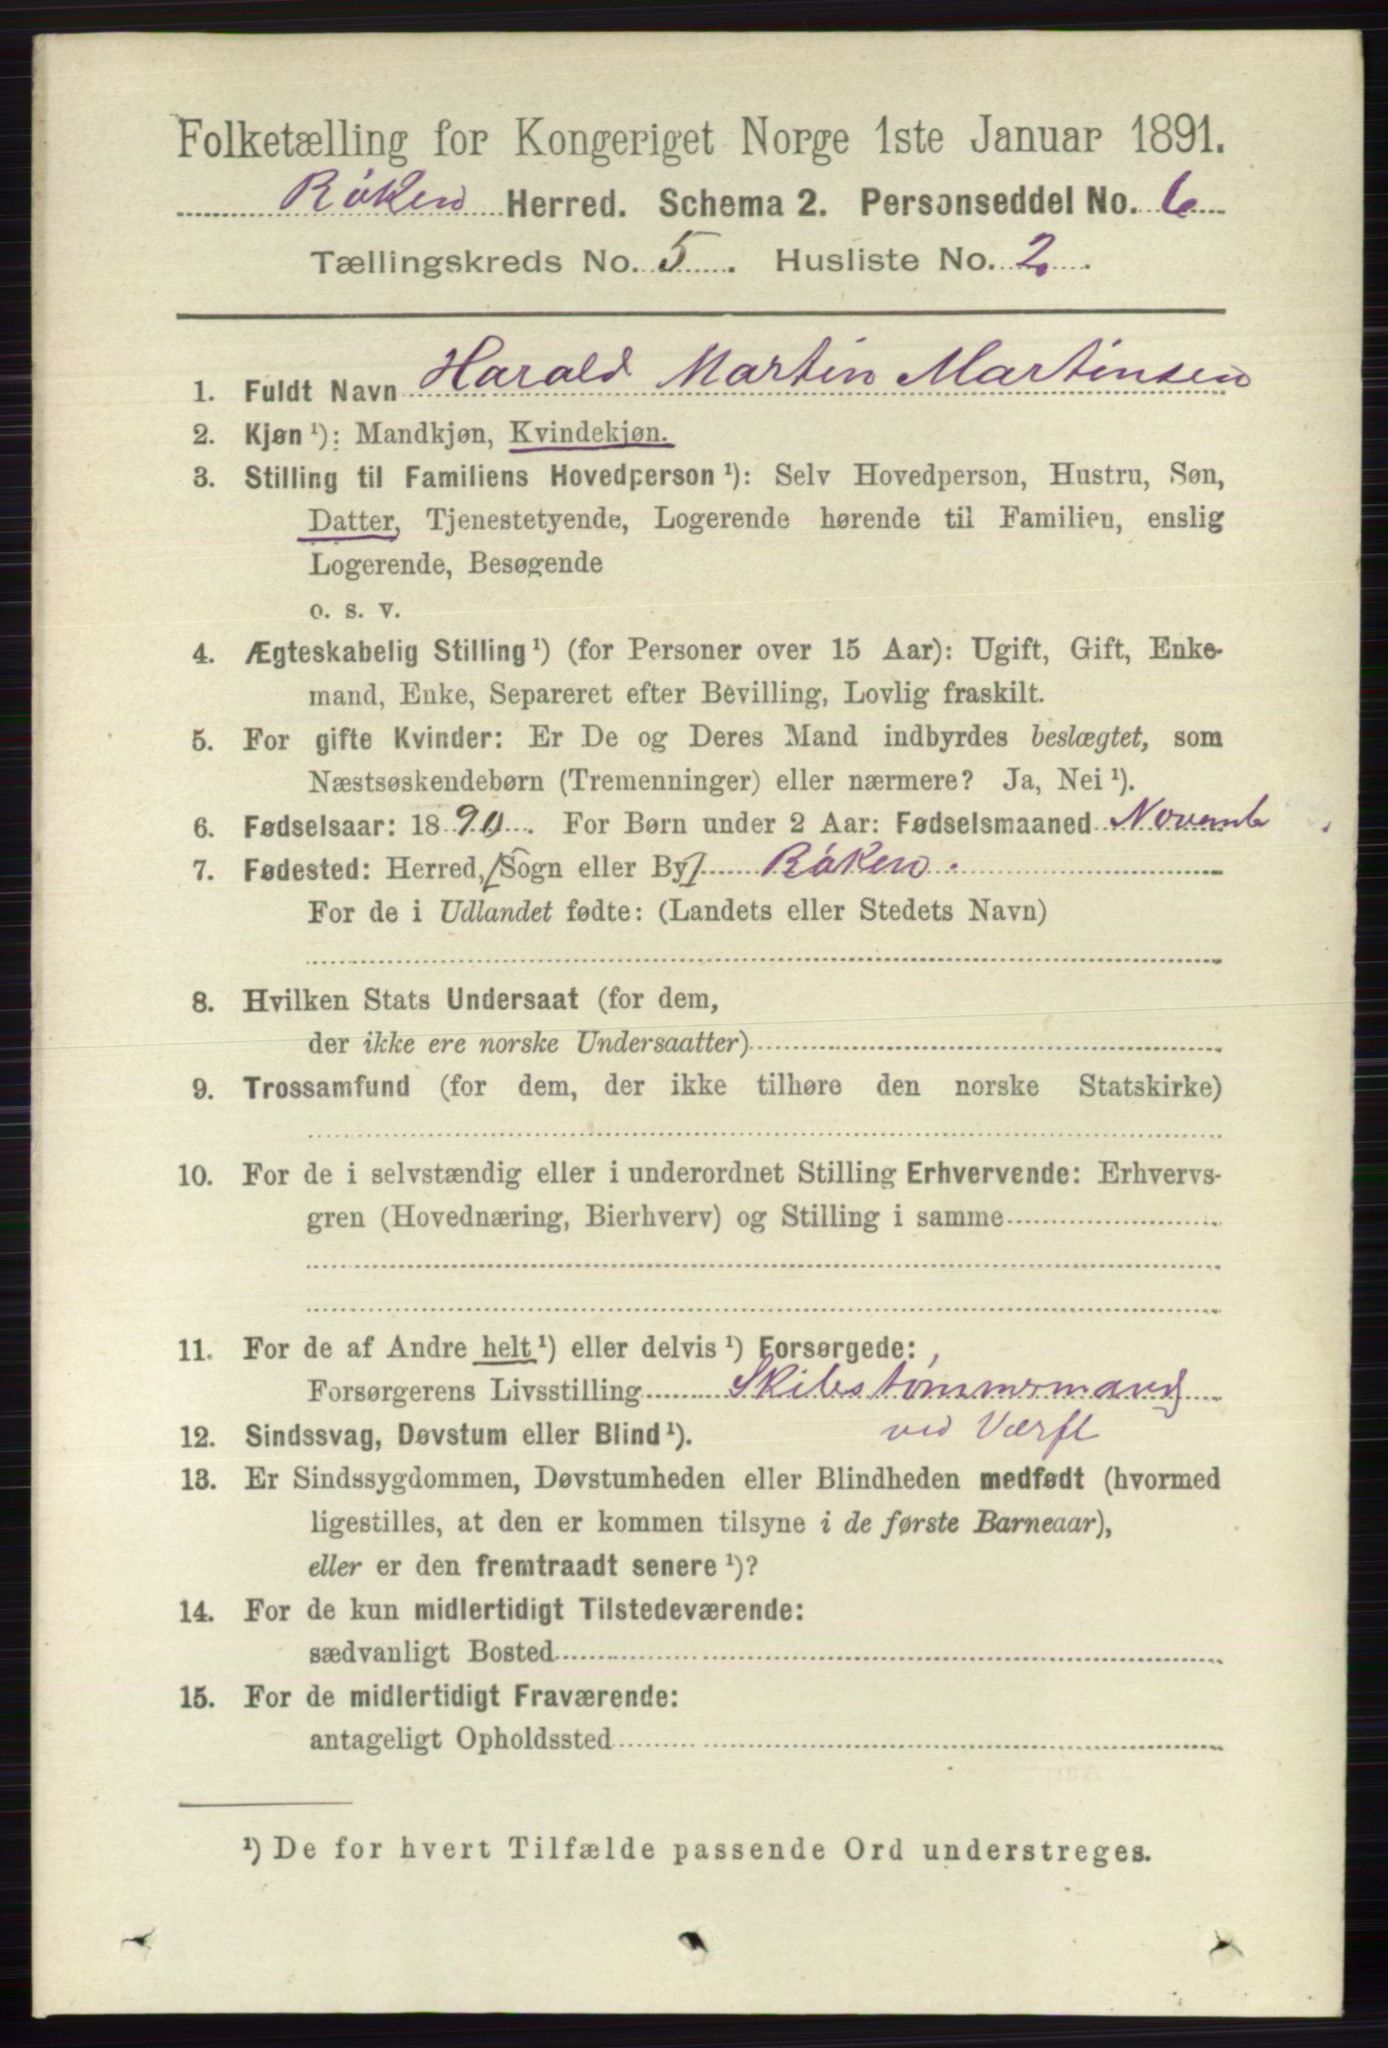 Folketælling for Kongeriget Norge 1ste Januar 1891.
Røken Herred. Schema 2. Personseddel No. 6
Tællingskreds No. 5. Husliste No. 2.
1. Fuldt Navn Harald Martin Martinsen
2. Kjøn ¹): Mandkjøn, Kvindekjøn.
3. Stilling til Familiens Hovedperson ¹): Selv Hovedperson, Hustru, Søn,
Datter, Tjenestetyende, Logerende hørende til Familien, enslig
Logerende, Besøgende
o. s. v.
4. Ægteskabelig Stilling ¹) (for Personer over 15 Aar): Ugift, Gift, Enke-
mand, Enke, Separeret efter Bevilling, Lovlig fraskilt.
5. For gifte Kvinder: Er De og Deres Mand indbyrdes beslægtet, som
Næstsøskendebørn (Tremenninger) eller nærmere? Ja, Nei ¹).
6. Fødselsaar: 1890. For Børn under 2 Aar: Fødselsmaaned Novemb
7. Fødested: Herred, [Sogn eller By] Røken.
For de i Udlandet fødte: (Landets eller Stedets Navn)
8. Hvilken Stats Undersaat (for dem,
der ikke ere norske Undersaatter)
9. Trossamfund (for dem, der ikke tilhøre den norske Statskirke)
10. For de i selvstændig eller i underordnet Stilling Erhvervende: Erhvervs-
gren (Hovednæring, Bierhverv) og Stilling i samme
11. For de af Andre helt ¹) eller delvis ¹) Forsørgede:
Forsørgerens Livsstilling Skibstømmermand
ved Værft
12. Sindssvag, Døvstum eller Blind ¹).
13. Er Sindssygdommen, Døvstumheden eller Blindheden medfødt (hvormed
ligestilles, at den er kommen tilsyne i de første Barneaar),
eller er den fremtraadt senere ¹)?
14. For de kun midlertidigt Tilstedeværende:
sædvanligt Bosted
15. For de midlertidigt Fraværende:
antageligt Opholdssted
¹) De for hvert Tilfælde passende Ord understreges.